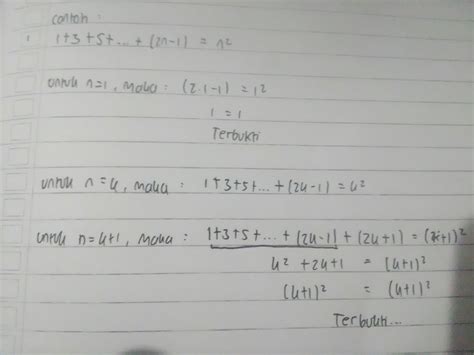 contoh :
1 1+3+5+... + (2n-1) = n²
untuk n=1, maka : (2.1-1) = 1²
1 = 1
Terbukti
untuk n=k, maka : 1+3+5+... + (2k-1) = k²
untuk n=k+1, maka : 1+3+5+... + (2k-1) + (2k+1) = (k+1)²
k² + 2k+1 = (k+1)²
(k+1)² = (k+1)²
Terbukti...